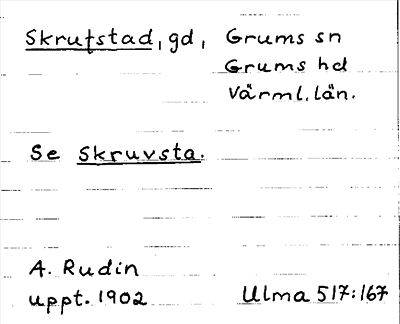 Skrufstad, gd, Grums sn
Grums hd
Värml. län.
Se Skruvsta.
A. Rudin
uppt. 1902 Ulma 517:167